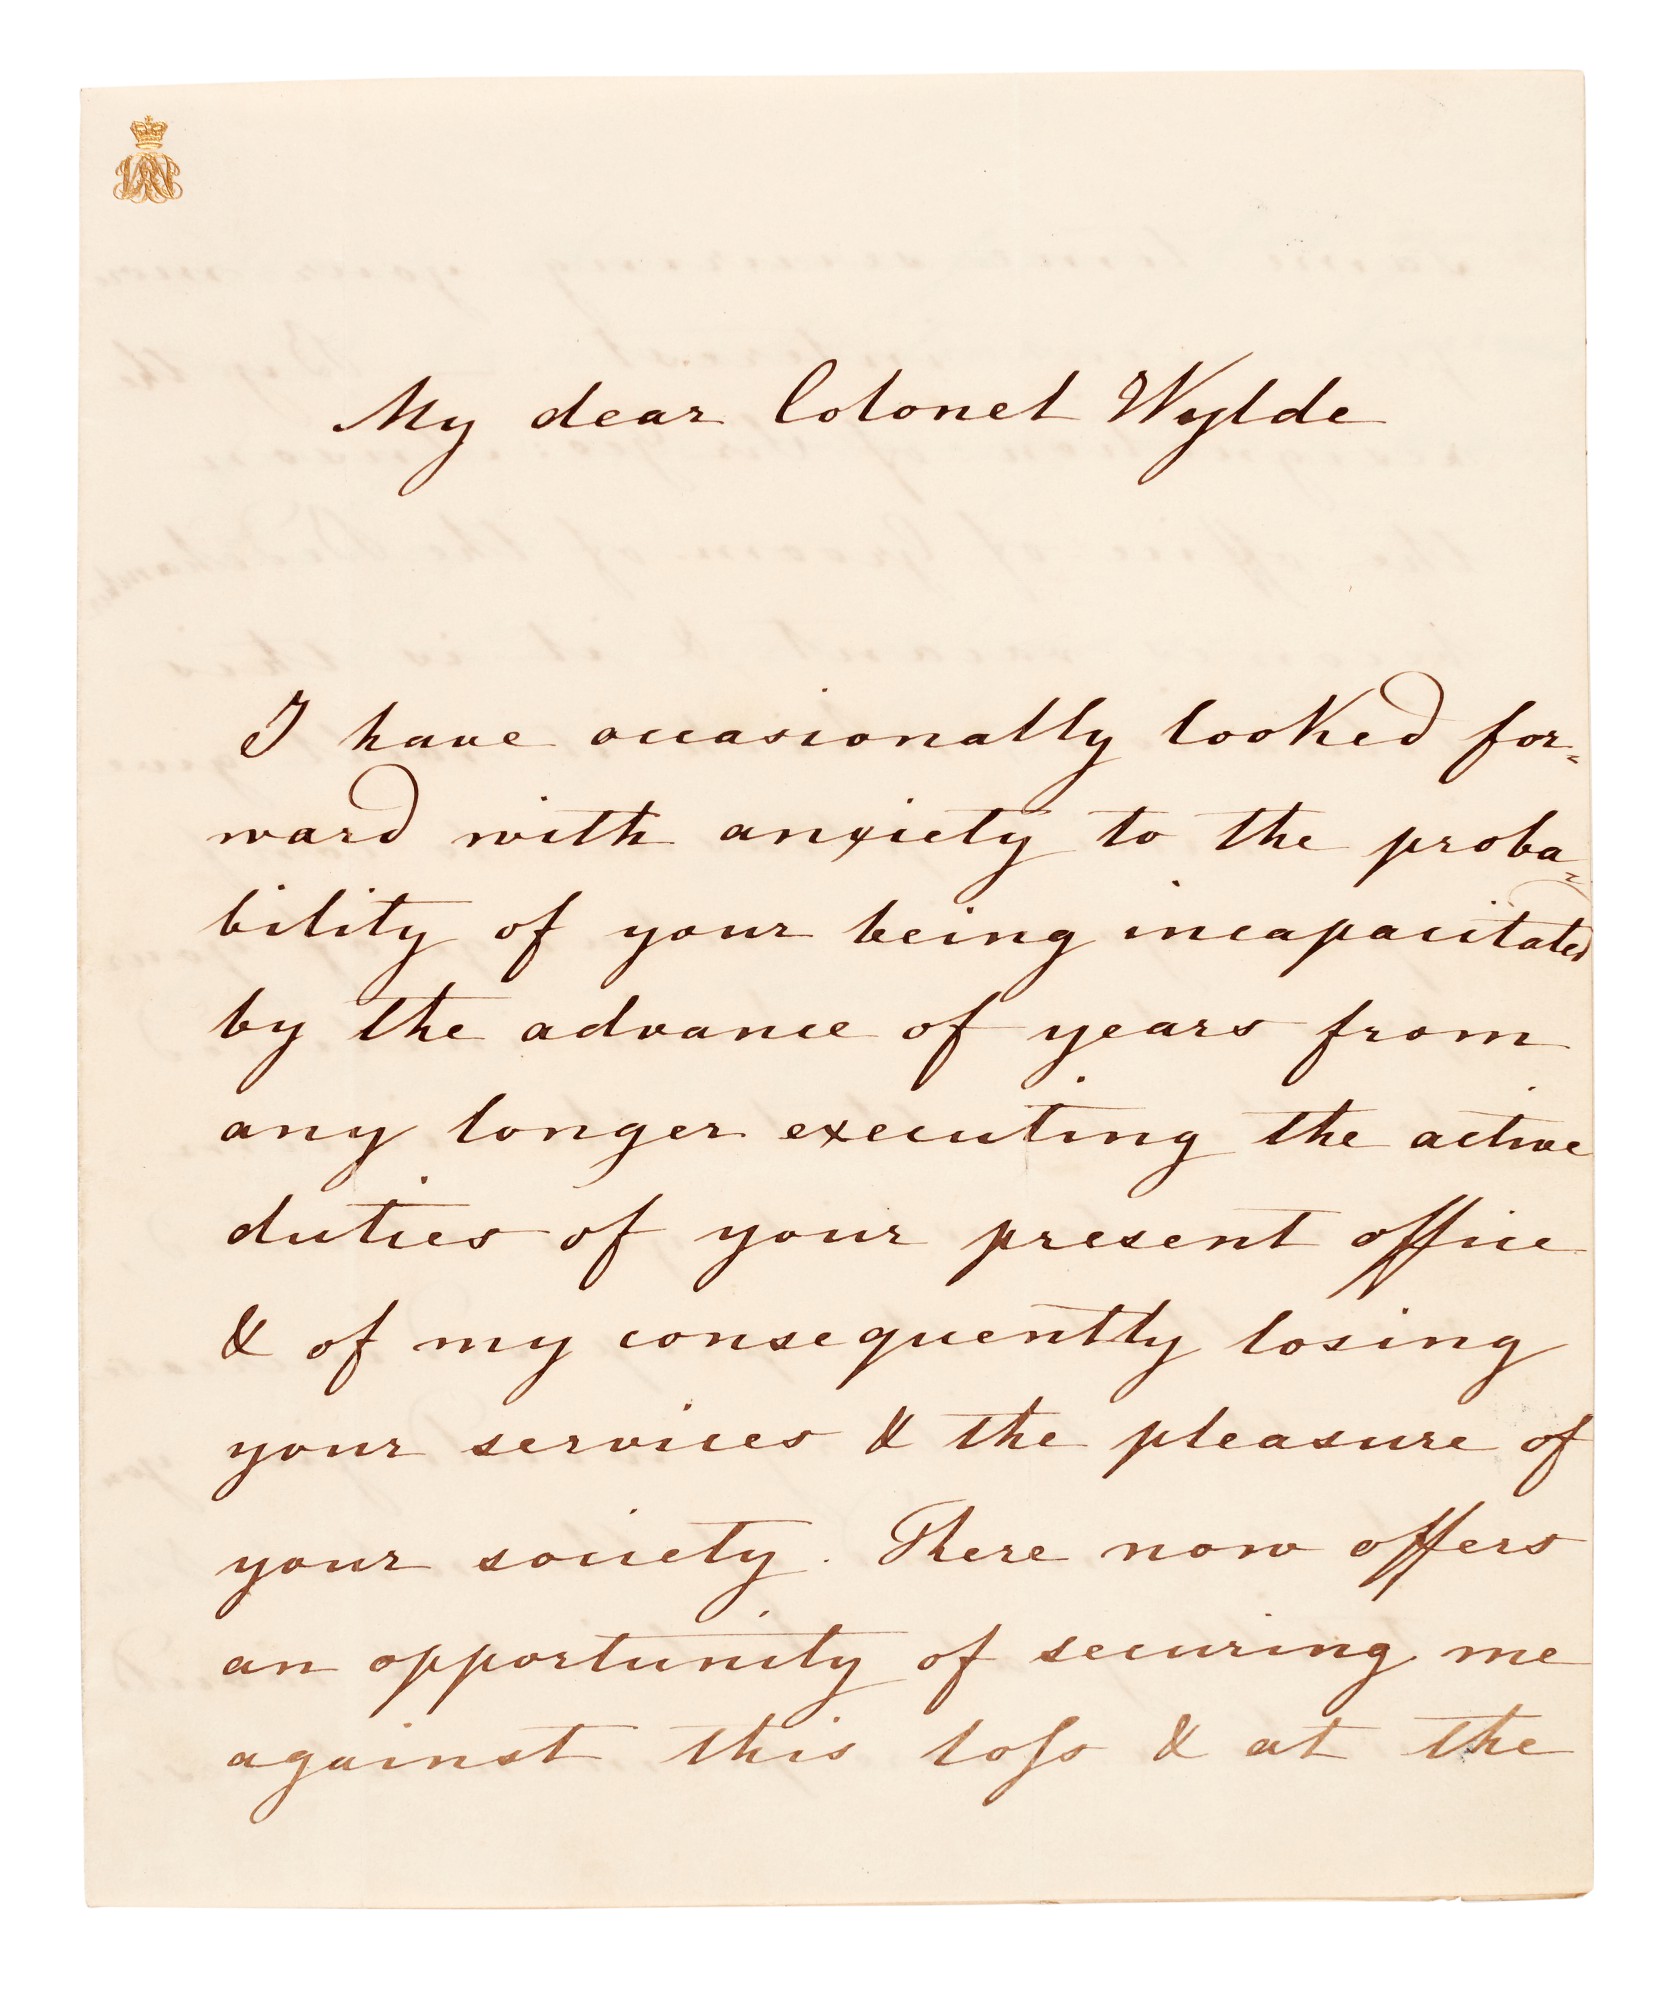 My dear Colonel Wylde
I have occasionally looked for=
ward with anxiety to the proba=
bility of your being incapacitated
by the advance of years from
any longer executing the active
duties of your present office
& of my consequently losing
your services & the pleasure of
your society. There now offers
an opportunity of securing me
against this loſs & at the